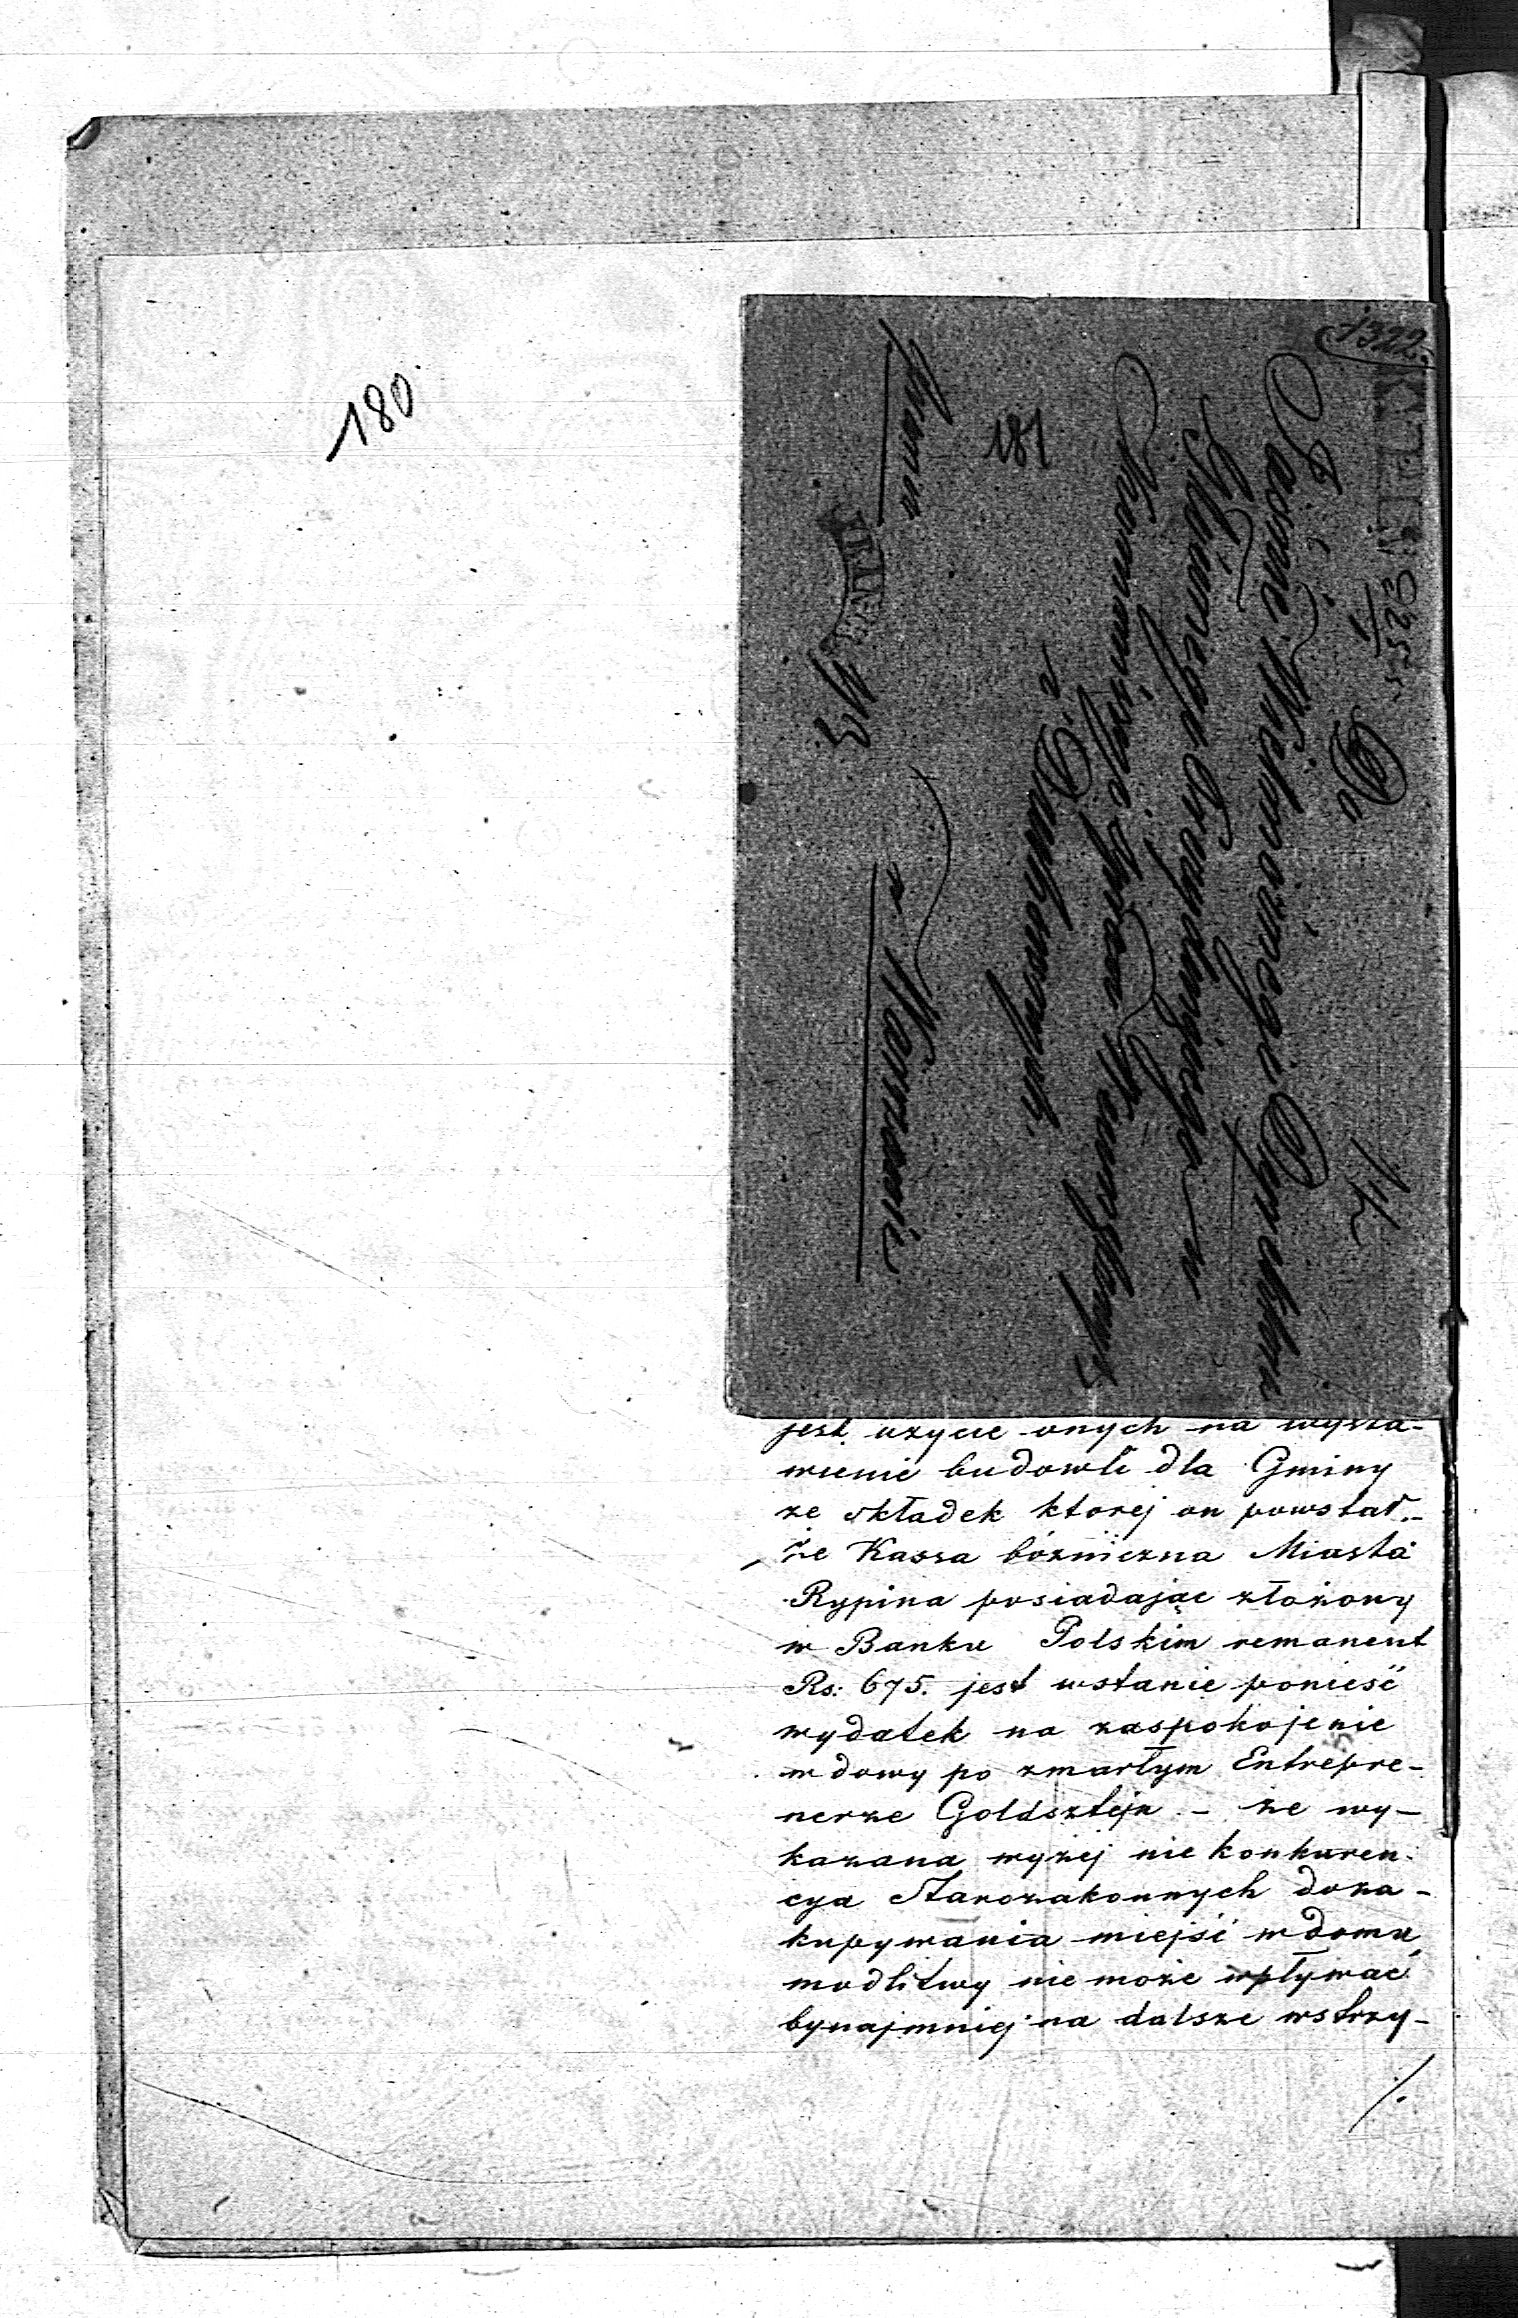 180
181
1322.
Do
Jaśnie Wielmożnego Dyrektora
Głównego Prezydującego w
Kommissyi Spraw Wewnętrznych
i Duchownych
w Warszawie
jest użycie onych na wysta-
wienie budowli dla Gminy
ze składek ktorej on powstał.-
że Kassa bóżniczna Miasta
Rypina posiadając złożony
w Banku Polskim remanent
Rs: 675. jest wstanie ponieść
wydatek na zaspokojenie
wdowy po zmarłym Entrepre-
nerze Goldsztejn - że wy-
kazana wyżej nie konkuren-
cya Starozakonnych doza-
kupywania miejść w domu
modlitwy nie może wpływać
bynajmniej na dalsze wstrzy-
./.